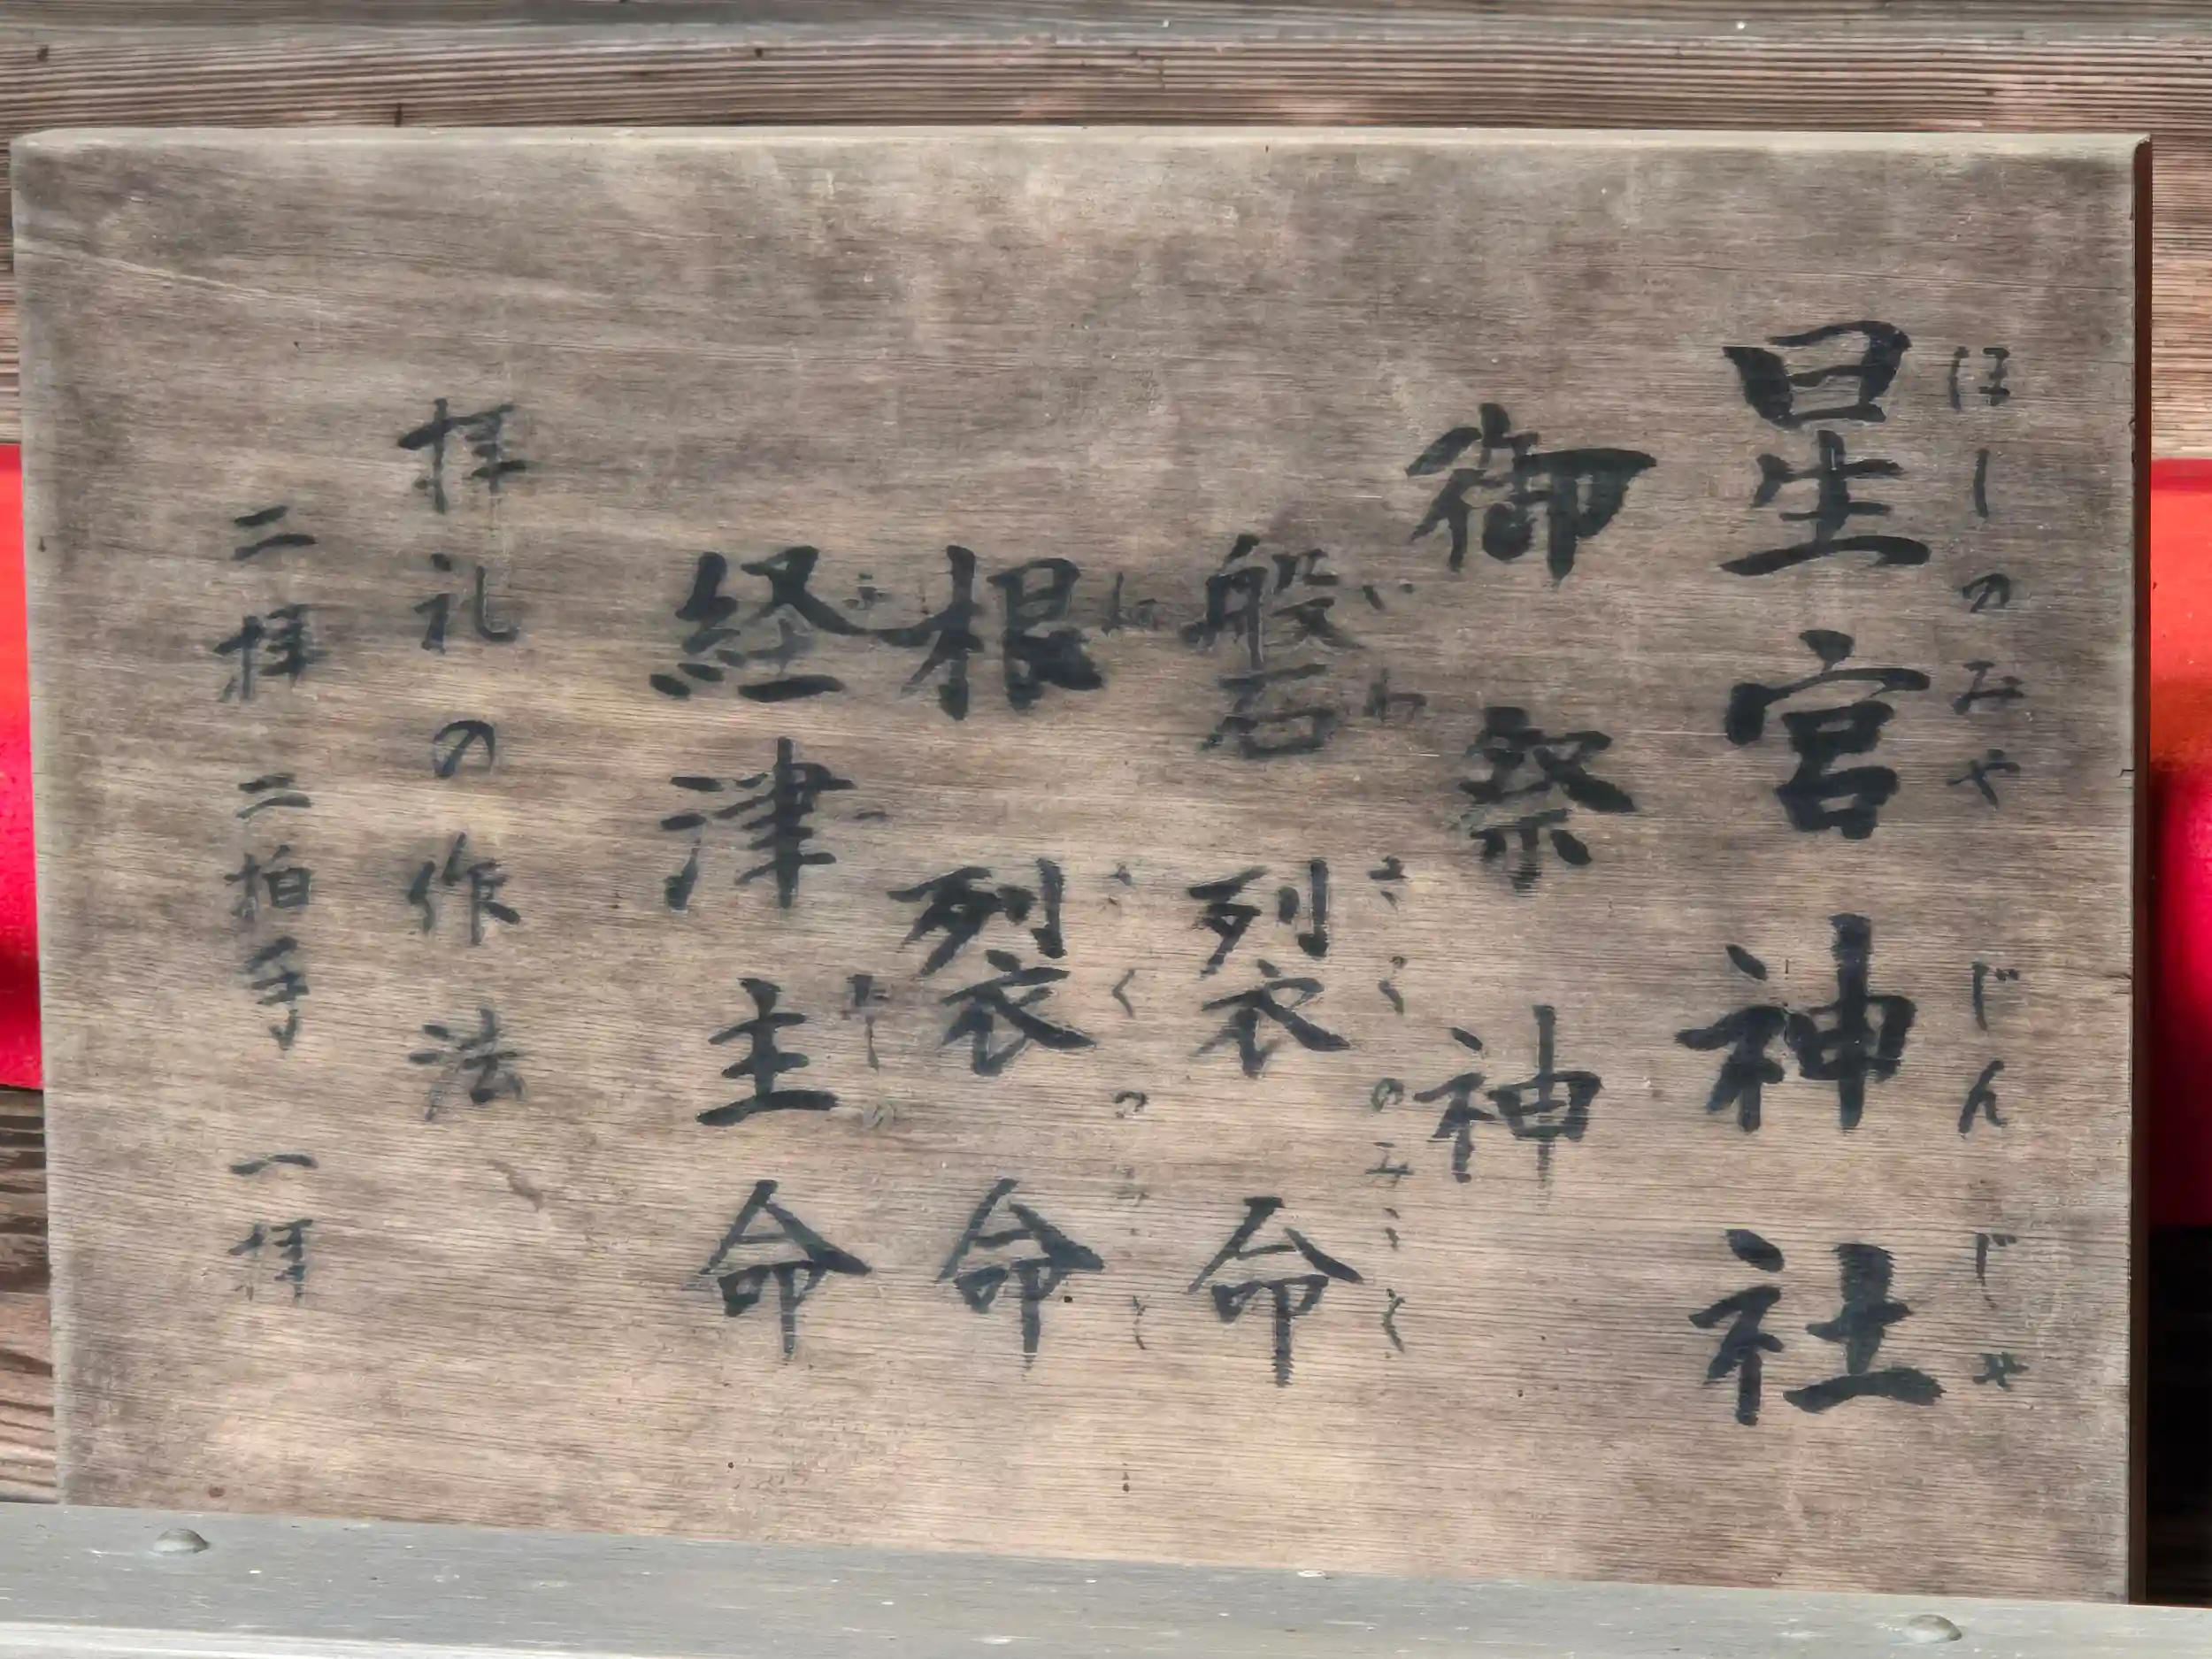 ほしのみやじんじゃ
星宮神社
御祭神
いわさくのみこと
磐裂命
ねさくのみこと
根裂命
ふつぬしの
経津主命
拝礼の作法
二拝 二拍手 一拝